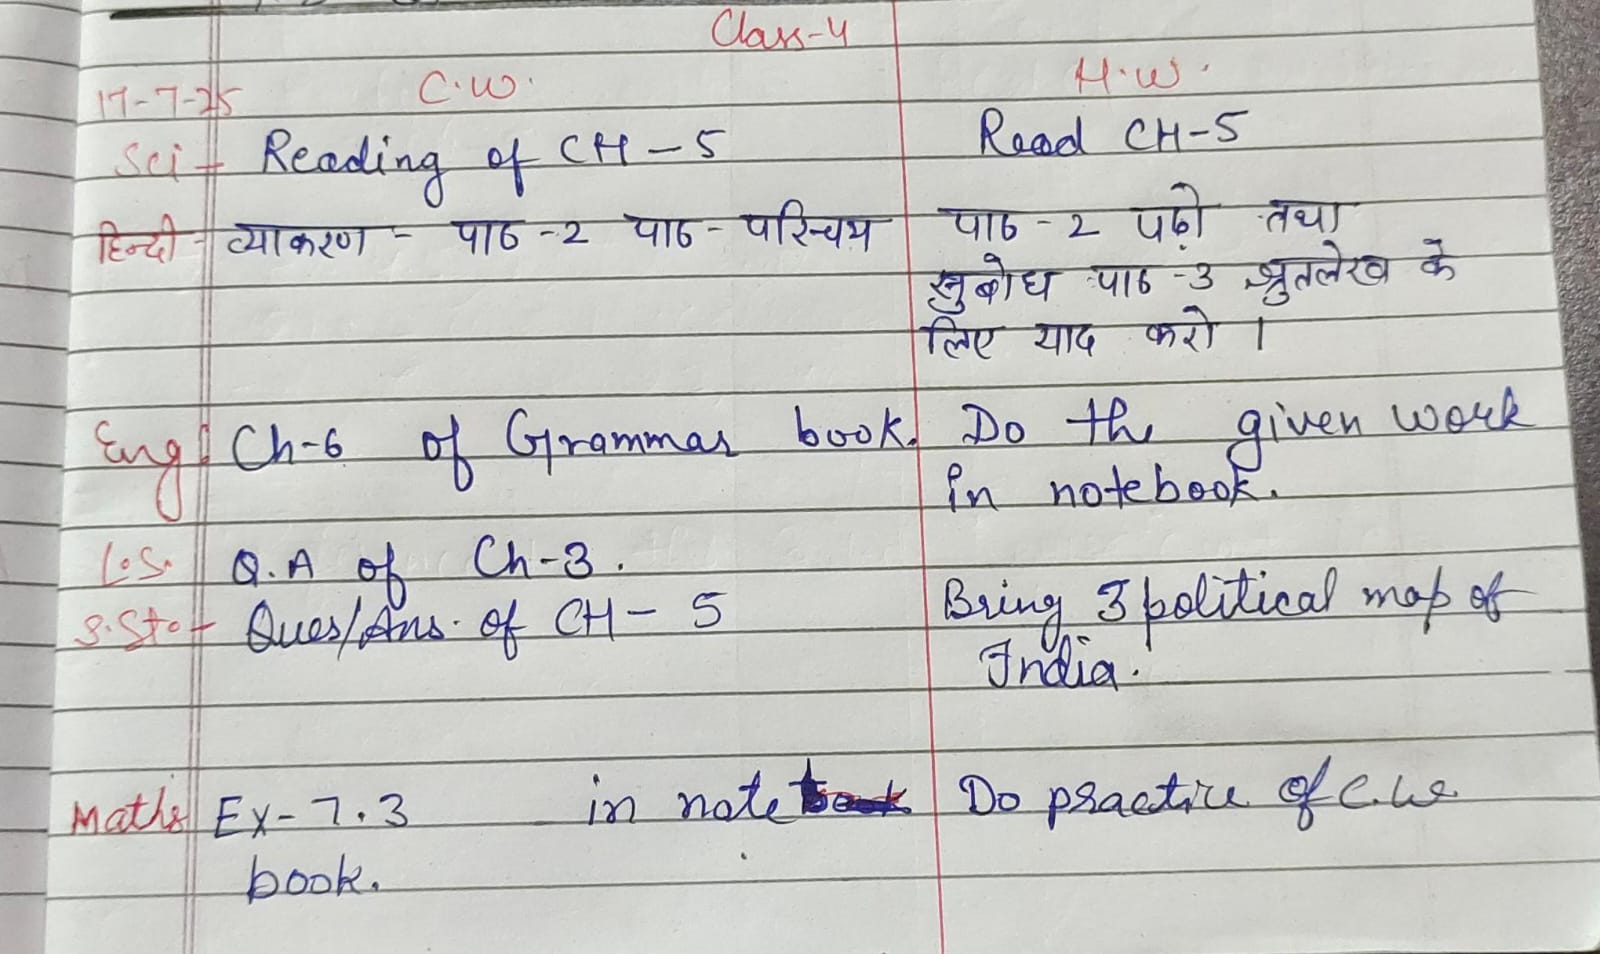 Class-4
17-7-25 C.W. H.W.
Sci - Reading of CH-5 Read CH-5
हिन्दी - व्याकरण - पाठ -2 पाठ - परिचय पाठ -2 पढ़ो तथा
सुबोध पाठ -3 श्रुतलेख के
लिए याद करो ।
Eng Ch-6 of Grammar book. Do the given work
in notebook.
L.S. Q.A of Ch-3.
S.St. - Ques/Ans. of CH-5 Bring 3 political map of
India.
Maths Ex-7.3 in note Do practice of C.W.
book.